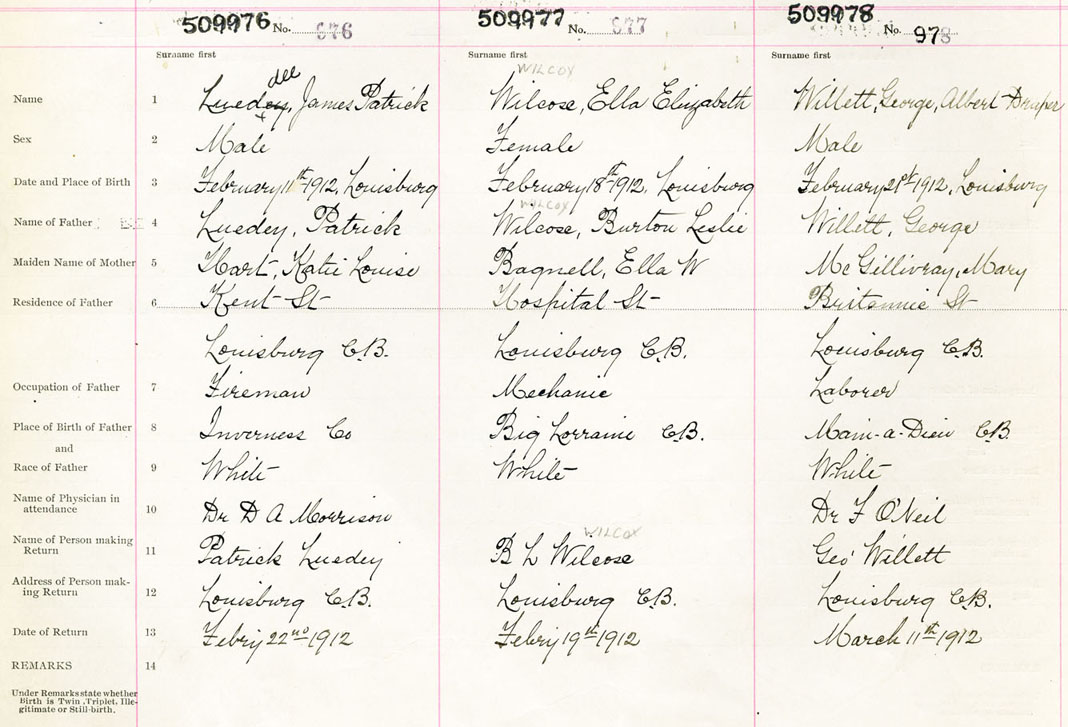 509976 No. 976 509977 No. 977 509978 No. 978
Surname first Surname first Surname first
dee WILCOX
Name 1 Luedey, James Patrick Wilcose, Ella Elizabeth Willett, George, Albert Draper
Sex 2 Male Female Male
Date and Place of Birth 3 February 11th 1912, Louisburg February 18th 1912, Louisburg February 21st 1912, Louisburg
WILCOX
Name of Father 4 Luedey, Patrick Wilcose, Burton Leslie Willett, George
Maiden Name of Mother 5 Hart, Katie Louise Bagnell, Ella W McGillivray, Mary
Residence of Father 6 Kent St Hospital St Britannic St
Louisburg C.B. Louisburg C.B. Louisburg C.B.
Occupation of Father 7 Fireman Mechanic Laborer
Place of Birth of Father 8 Inverness Co Big Lorraine C.B. Main-a-Dieu C.B.
and
Race of Father 9 White White White
Name of Physician in
attendance 10 Dr D A Morrison Dr F O'Neil
WILCOX
Name of Person making
Return 11 Patrick Luedey B L Wilcose Geo Willett
Address of Person mak-
ing Return 12 Louisburg C.B. Louisburg C.B. Louisburg C.B.
Date of Return 13 Febry 22nd 1912 Febry 19th 1912 March 11th 1912
REMARKS 14
Under Remarks state whether
Birth is Twin, Triplet, Ille-
gitimate or Still-birth.